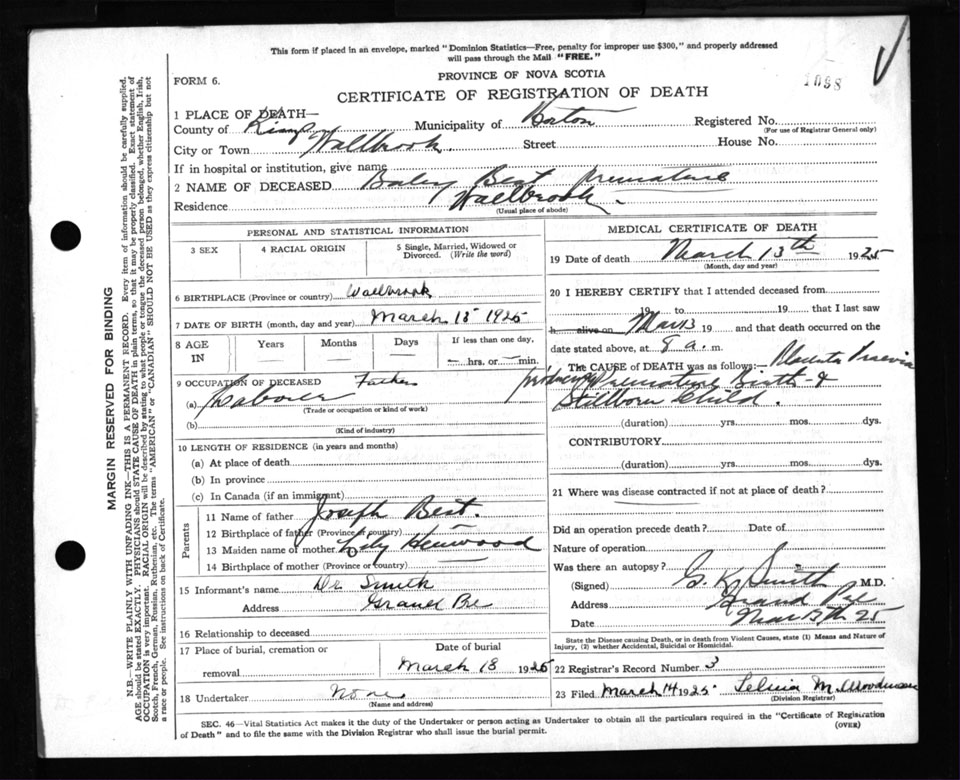 This form if placed in an envelope, marked "Dominion Statistics—Free, penalty for improper use $300," and properly addressed
will pass through the Mail "FREE."
PROVINCE OF NOVA SCOTIA
FORM 6.
1098
CERTIFICATE OF REGISTRATION OF DEATH
1 PLACE OF DEATH—
County of Kings Municipality of Horton Registered No.
(For use of Registrar General only)
City or Town Wallbrook. Street House No.
If in hospital or institution, give name
2 NAME OF DECEASED Baby Best Premature
Residence Wallbrook.
(Usual place of abode)
PERSONAL AND STATISTICAL INFORMATION
3 SEX
4 RACIAL ORIGIN
5 Single, Married, Widowed or
Divorced. (Write the word)
6 BIRTHPLACE (Province or country) Wallbrook
7 DATE OF BIRTH (month, day and year) March 13 1925
8 AGE
IN
Years
Months
Days
If less than one day,
hrs. or min.
9 OCCUPATION OF DECEASED Father
(a) Laborer
(Trade or occupation or kind of work)
(b)
(Kind of industry)
10 LENGTH OF RESIDENCE (in years and months)
(a) At place of death
(b) In province
(c) In Canada (if an immigrant)
Parents
11 Name of father Joseph Best.
12 Birthplace of father (Province or country)
13 Maiden name of mother Henwood
14 Birthplace of mother (Province or country)
15 Informant's name Dr Smith
Address Grand Pre
16 Relationship to deceased
17 Place of burial, cremation or
removal
Date of burial
March 13 1925
18 Undertaker None
(Name and address)
MEDICAL CERTIFICATE OF DEATH
19 Date of death March 13th 1925
(Month, day and year)
20 I HEREBY CERTIFY that I attended deceased from
19 to 19 that I last saw
h alive on Mar 13 19 and that death occurred on
date stated above, at 8 a. m.
The CAUSE of DEATH was as follows: Placenta Praevia
Premature Birth &
Stillborn Child.
(duration) yrs. mos. dys.
CONTRIBUTORY
(duration) yrs. mos. dys.
21 Where was disease contracted if not at place of death?
Did an operation precede death? Date of
Nature of operation
Was there an autopsy?
(Signed) G. K. Smith M.D.
Address Grand Pre
Date Mar 13th 25
State the Disease causing Death, or in death from Violent Causes, state (1) Means and Nature of
Injury, (2) whether Accidental, Suicidal or Homicidal.
22 Registrar's Record Number 3
23 Filed March 14 1925. M.
(Division Registrar)
SEC. 46—Vital Statistics Act makes it the duty of the Undertaker or person acting as Undertaker to obtain all the particulars required in the "Certificate of Registration
of Death" and to file the same with the Division Registrar who shall issue the burial permit.
(OVER)
MARGIN RESERVED FOR BINDING
N.B.—WRITE PLAINLY WITH UNFADING INK—THIS IS A PERMANENT RECORD. Every item of information should be carefully supplied.
AGE should be stated EXACTLY. PHYSICIANS should STATE CAUSE OF DEATH in plain terms, so that it may be properly classified. Exact statement of
OCCUPATION is very important. RACIAL ORIGIN will be described by stating to what people or tongue the deceased person belonged, whether English, Irish,
Scotch, French, German, Russian, Ruthenian, etc. The terms "AMERICAN" or "CANADIAN" SHOULD NOT BE USED as they express citizenship but not
a race or people. See instructions on back of Certificate.